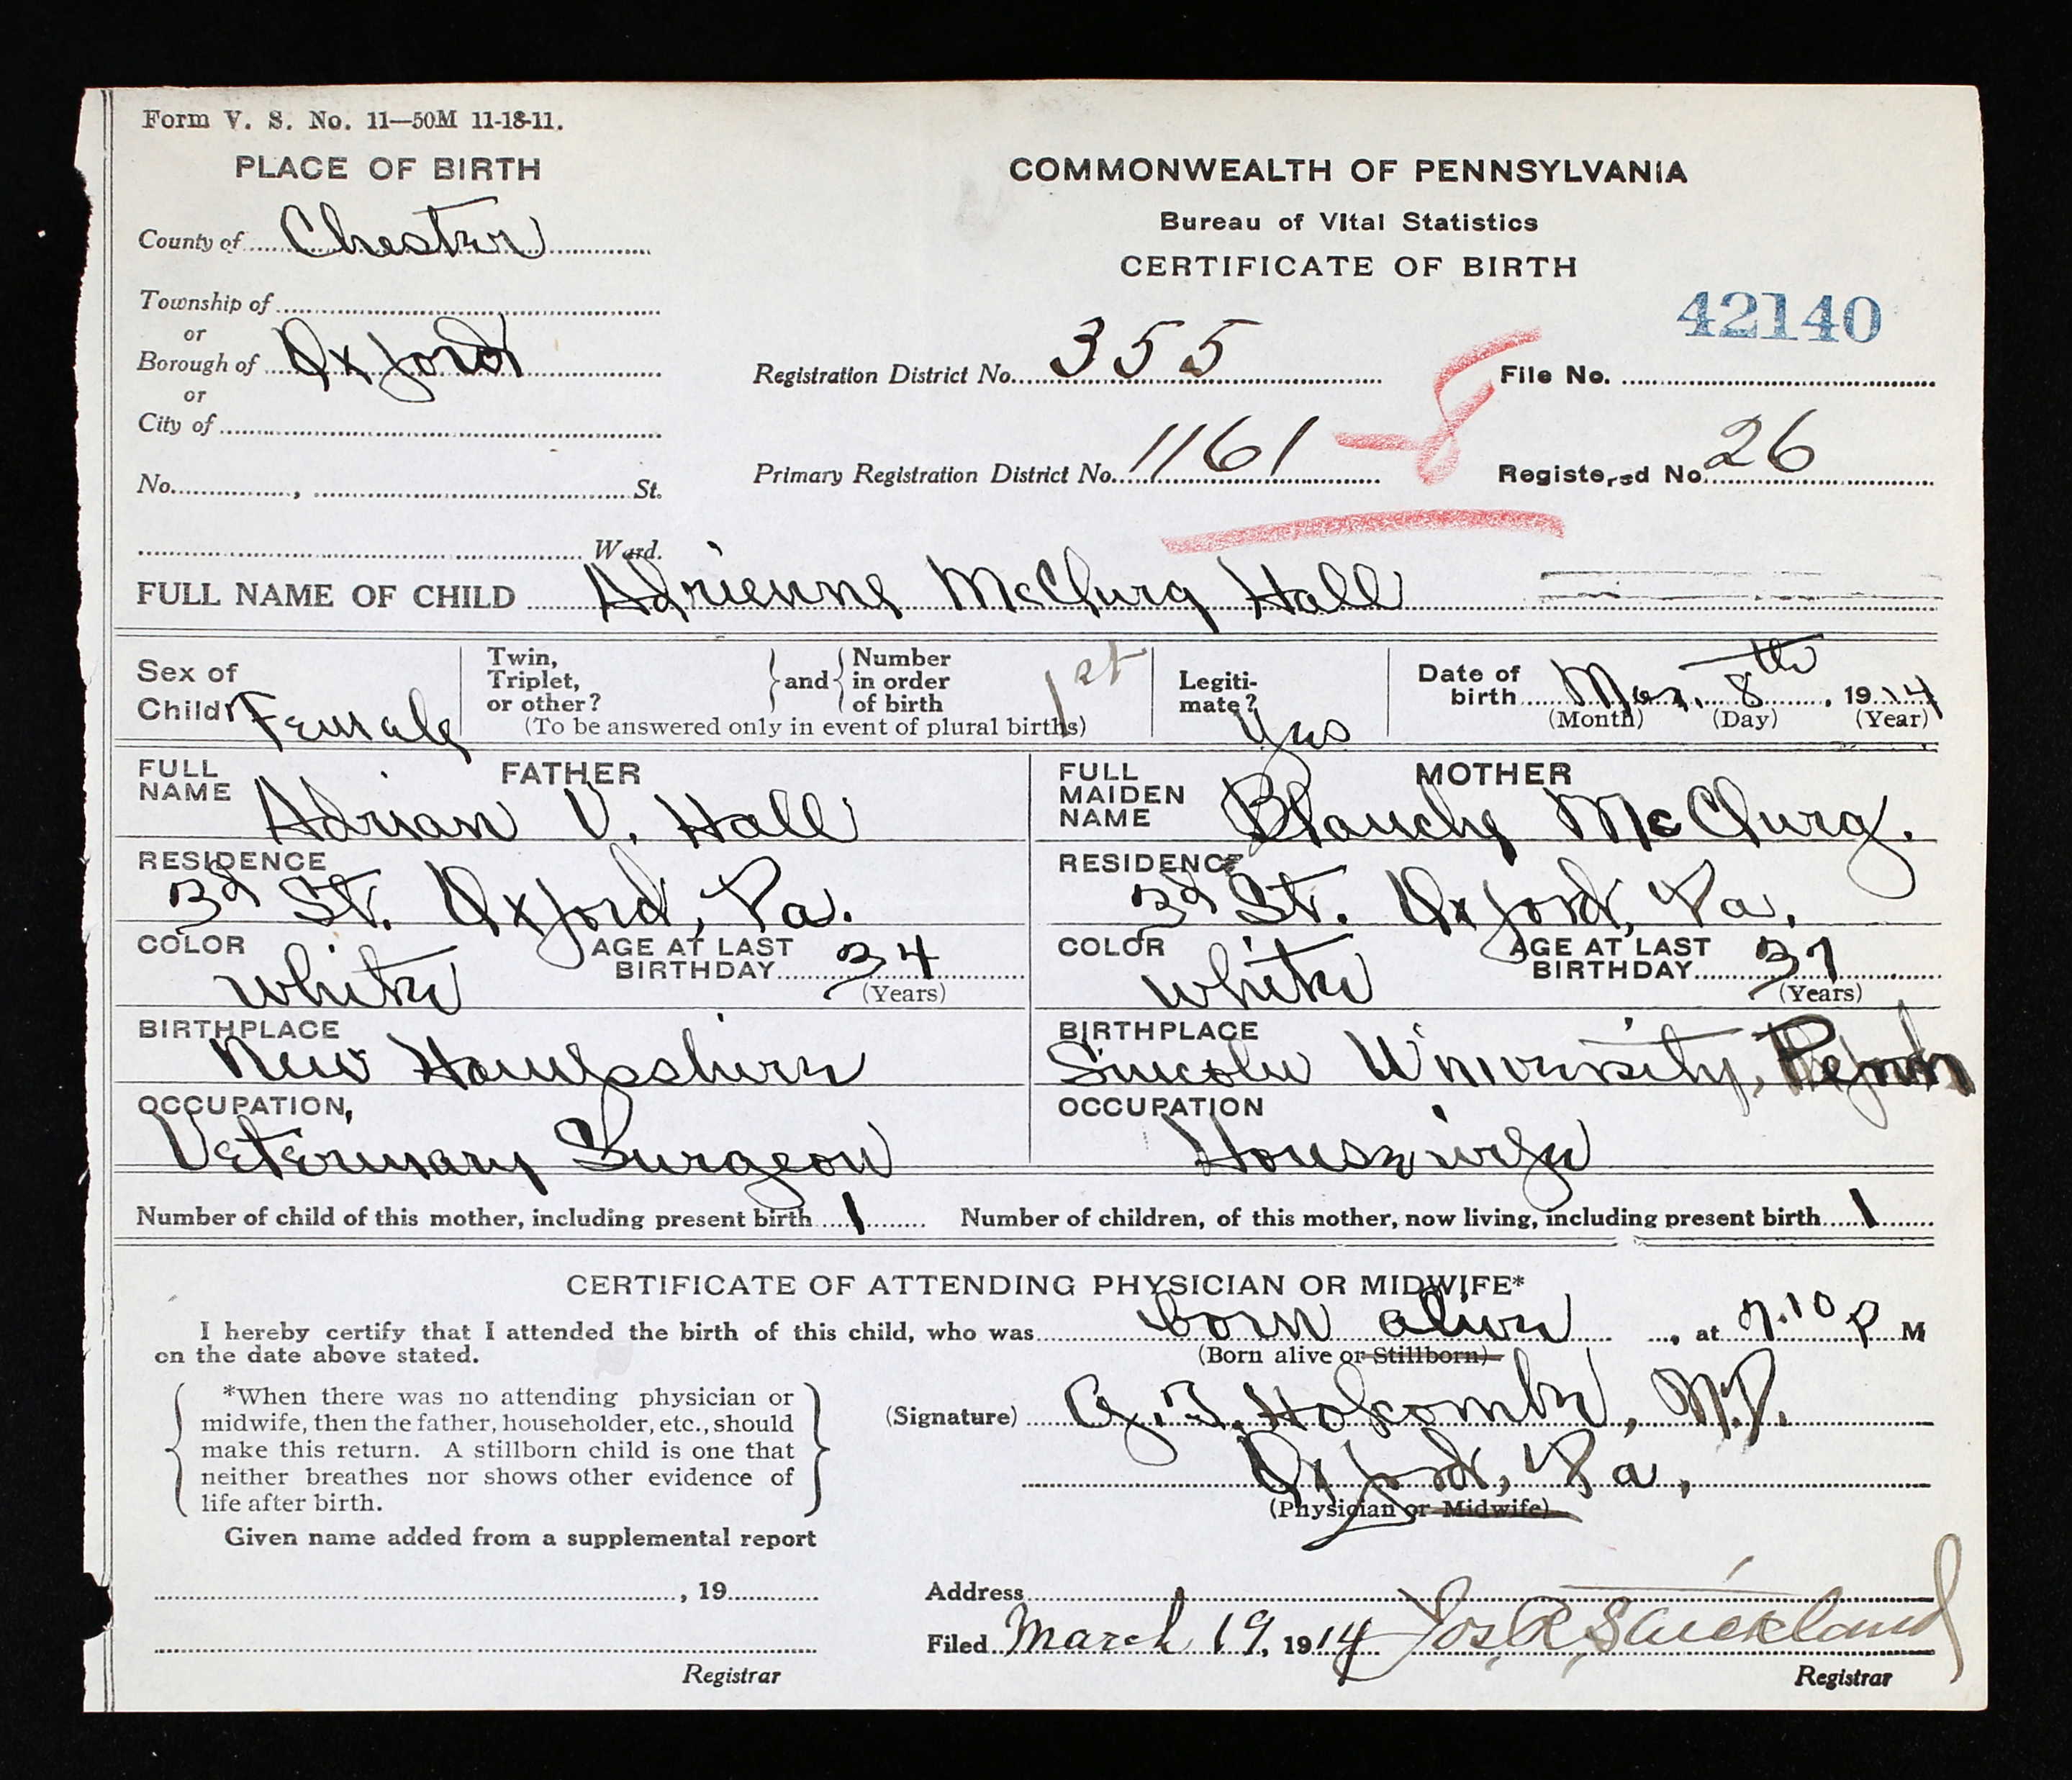 Form V. S. No. 11—50M 11-18-11.
PLACE OF BIRTH
County of Chester
Township of
or
Borough of Oxford
or
City of
No. , St.
Ward.
COMMONWEALTH OF PENNSYLVANIA
Bureau of Vital Statistics
CERTIFICATE OF BIRTH
42140
Registration District No. 355 File No.
Primary Registration District No. 1161 - 8 Registered No. 26
FULL NAME OF CHILD Adrienne McClurg Hall
Sex of Child Female
Twin, Triplet, or other? and Number in order of birth 1st
(To be answered only in event of plural births)
Legitimate? Yes
Date of birth Mar. 8th, 1914
(Month) (Day) (Year)
FATHER
FULL NAME Adrian V. Hall
RESIDENCE 3d St. Oxford, Pa.
COLOR white AGE AT LAST BIRTHDAY 34 (Years)
BIRTHPLACE New Hampshire
OCCUPATION Veterinary Surgeon
MOTHER
FULL MAIDEN NAME Blanche McClurg.
RESIDENCE 3d St. Oxford, Pa.
COLOR white AGE AT LAST BIRTHDAY 37 (Years)
BIRTHPLACE Lincoln University, Penn
OCCUPATION Housewife
Number of child of this mother, including present birth 1 Number of children, of this mother, now living, including present birth 1
CERTIFICATE OF ATTENDING PHYSICIAN OR MIDWIFE*
I hereby certify that I attended the birth of this child, who was born alive, at 7.10 P M
on the date above stated. (Born alive or Stillborn)
*When there was no attending physician or
midwife, then the father, householder, etc., should
make this return. A stillborn child is one that
neither breathes nor shows other evidence of
life after birth.
(Signature) G. T. Holcombe, M.D.
Oxford, Pa.,
(Physician or Midwife)
Given name added from a supplemental report
, 19
Registrar
Address
Filed March 19, 1914 Jos R Strickland
Registrar